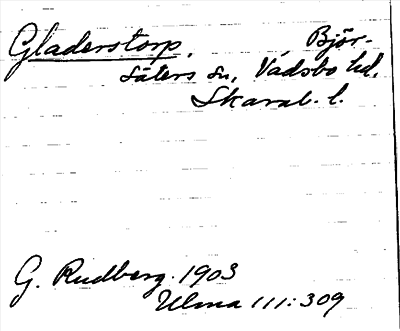 Gladerstorp. Björ-
säters sn, Vadsbo hd.
Skarab. l.
G. Rudberg. 1903
Ulma 111:309